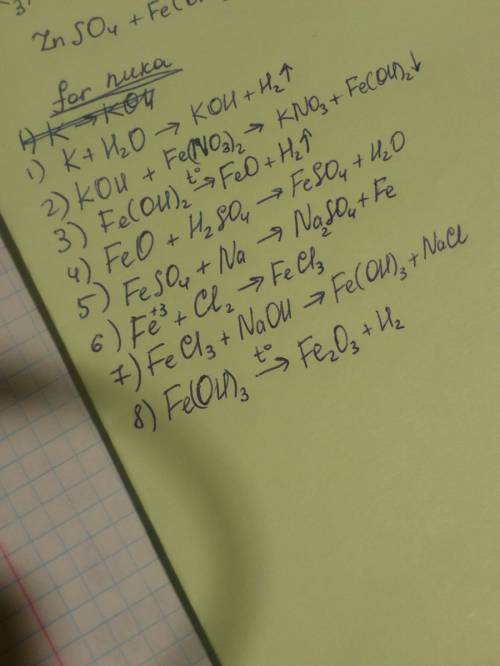 3)
ZnSO₄ + Fe(
for пика
1) K → KOH
1) K + H₂O → KOH + H₂↑
2) KOH + Fe(NO₃)₂ → KNO₃ + Fe(OH)₂↓
3) Fe(OH)₂ t° → FeO + H₂↑
4) FeO + H₂SO₄ → FeSO₄ + H₂O
5) FeSO₄ + Na → Na₂SO₄ + Fe
6) Fe⁺³ + Cl₂ → FeCl₃
7) FeCl₃ + NaOH → Fe(OH)₃ + NaCl
8) Fe(OH)₃ t° → Fe₂O₃ + H₂